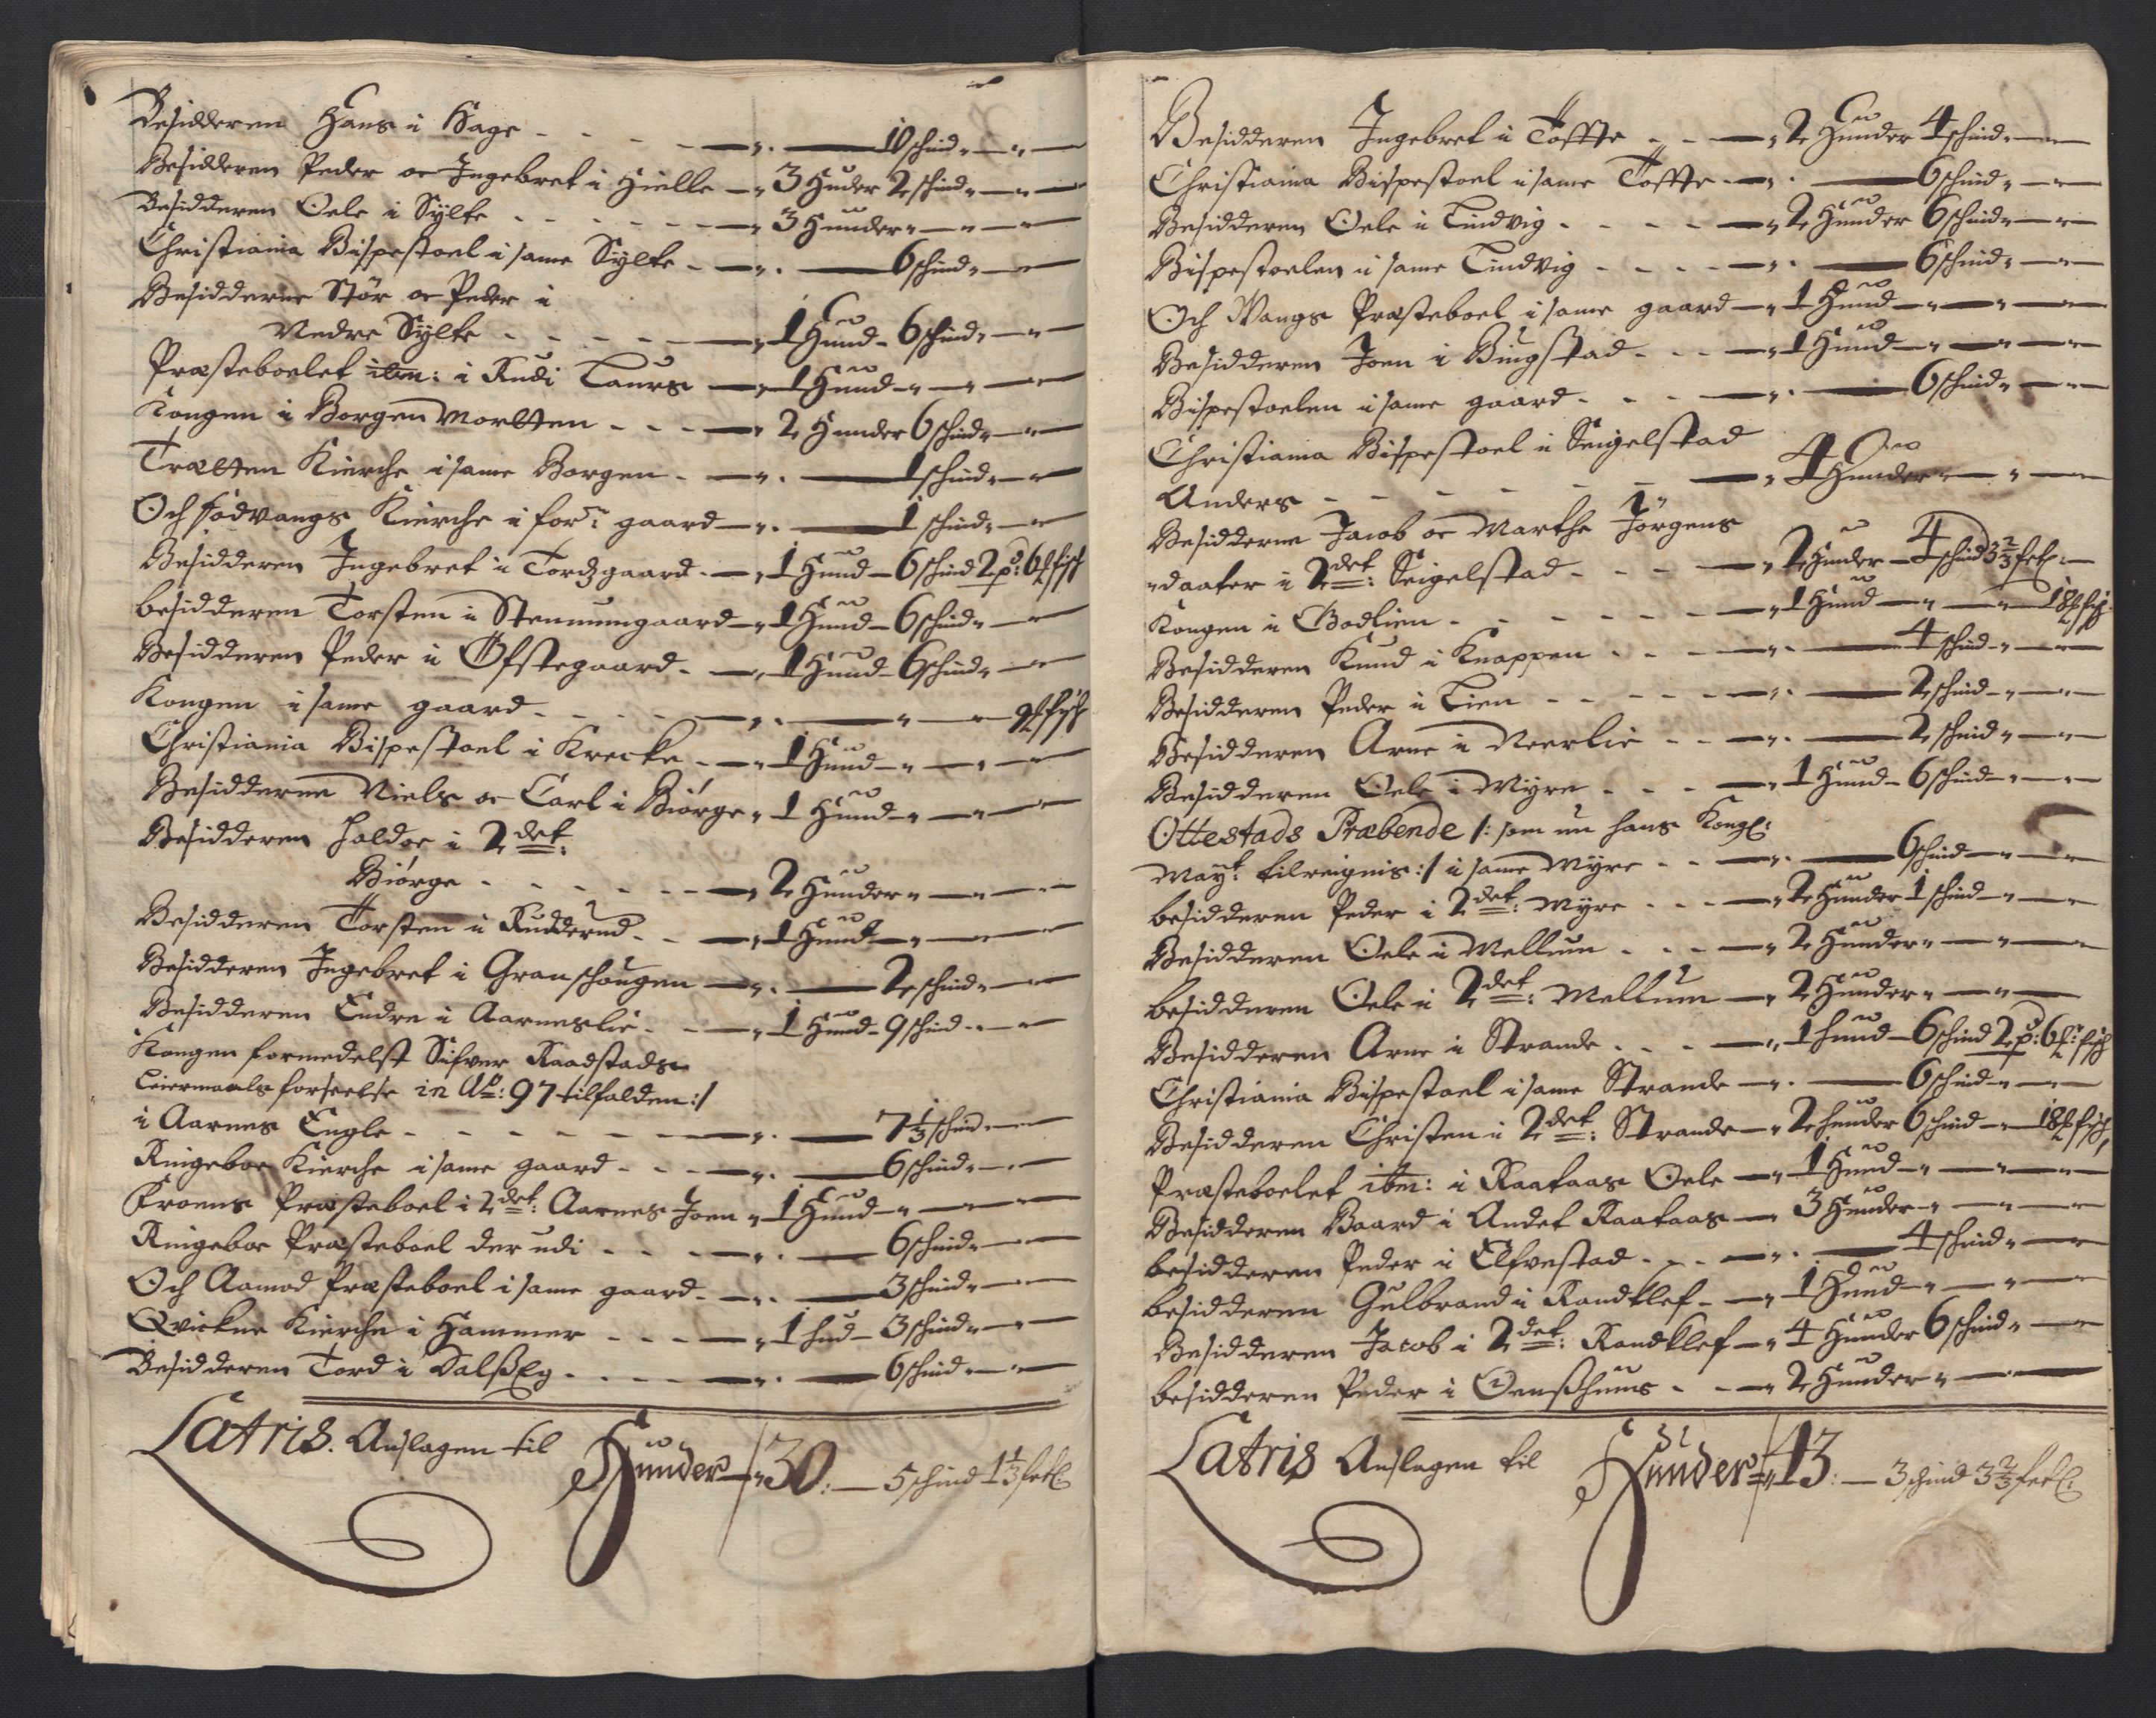 Besidderen Hans i Hage - - - - 10 schind
Besidderen Peder oc Ingebret i Hielle - 3 Huder 2 schind
Besidderen Oele i Sylte - - - - 3 Hunder
Christiania Bispestoel i same Sylte - - 6 schind
Besidderne Stør oc Peder i
Nedre Sylte - - - - 1 Hund - 6 schind
Præsteboelet ibm: i Rudi Laurs - 1 Hund
Kongen i Borgen Mortten - - - 2 Hunder 6 schind
Trætten Kierche i same Borgen - 1 schind
Och Fodvangs Kierche i forn: gaard - 1 schind
Besidderen Ingebret i Tordzgaard - 1 Hund - 6 schind 2 p: 6 fisch
besidderen Torsten i Stenumgaard - 1 Hund - 6 schind
Besidderen Peder i Øfstegaard - 1 Hund - 6 schind
Kongen i same gaard - - - 9 fisch
Christiania Bispestoel i Krecke - 1 Hund
Besidderne Niels oc Carl i Biørge - 1 Hund
Besidderen Haldor i 2det:
Biørge - - - - 2 Hunder
Besidderen Torsten i Rudderud - - 1 Hund
Besidderen Ingebret i Granschougen - 2 schind
Besidderen Endre i Aarneslie - - 1 Hund - 9 schind
Kongen formedelst Sifver Raadstads
Leiermaals forseelse in Ao: 97 tilfalden :/
i Aarnes Engle - - - - 7 1/3 schind
Ringeboe Kierche i same gaard - - 6 schind
Froens Præsteboel i 2det: Aarnes Joen - 1 Hund
Ringeboe Præsteboel der udi - - - 6 schind
Och Aamod Præsteboel i same gaard - 3 schind
Qvickne Kierche i Hammer - - - 1 hud - 3 schind
Besidderen Tord i Dalßeg - - - 6 schind
Latris. Anslagen til Hunder - 30: - 5 schind 1 1/3 fetl:
Besidderen Ingebret i Toffte - - 2 Hunder 4 schind
Christiania Bispestoel i same Toffte - 6 schind
Besidderen Oele i Lindvig - - - 2 Hunder 6 schind
Bispestoelen i same Lindvig - - - 6 schind
Och Wangs Præsteboel i same gaard - 1 Hund
Besidderen Joen i Bingstad - - 1 Hund
Bispestoelen i same gaard - - - 6 schind
Christiania Bispestoel i Seigelstad
Anders - - - - 4 Hunder
Besidderne Jacob oc Marthe Jørgens
daater i 2det: Seigelstad - - - 2 Hunder - 4 schind 3 2/3 fetl:
Kongen i Bodlien - - - - 1 Hund - 18 fisch
Besidderen Knud i Knappen - - - 4 schind
Besidderen Peder i Lien - - - 2 schind
Besidderen Arne i Neerlie - - 2 schind
Besidderen Oele i Myre - - - 1 Hund - 6 schind
Ottestads Præbende /: som nu hans Kongl:
Mayt: tilreignis :/ i same Myre - - 6 schind
besidderen Peder i 2det: Myre - - - 2 Hunder 1 schind
Besidderen Oele i Mellum - - - 2 Hunder
besidderen Oele i 2det: Mellum - 2 Hunder
Besidderen Arne i Strande - - - 1 hund - 6 schind 2 p: 6 fisch
Christiania Bispestoel i same Strande - 6 schind
Besidderen Christen i 2det: Strande - 2 hunder 6 schind - 18 fisch
Præsteboelet ibm: i Raataas Oele - 1 Hund
Besidderen Baard i Andet Raataas - 3 Hunder
besidderen Peder i Elfvestad - - - 4 schind
besidderen Gulbrand i Randklef - 1 Hund
Besidderen Jacob i 2det: Randklef - 4 Hunder 6 schind
besidderen Peder i Oenßhuus - - 2 Hunder
Latris Anslagen til Hunder - 43: - 3 schind 3 2/3 fetl: